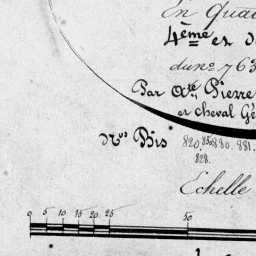 En Quat
4ème et d
du no 763
Par Ate Pierre
et cheval Gé
Nos Bis 820. 850 880. 881.
828.
Echelle
0 5 10 15 20 25 50